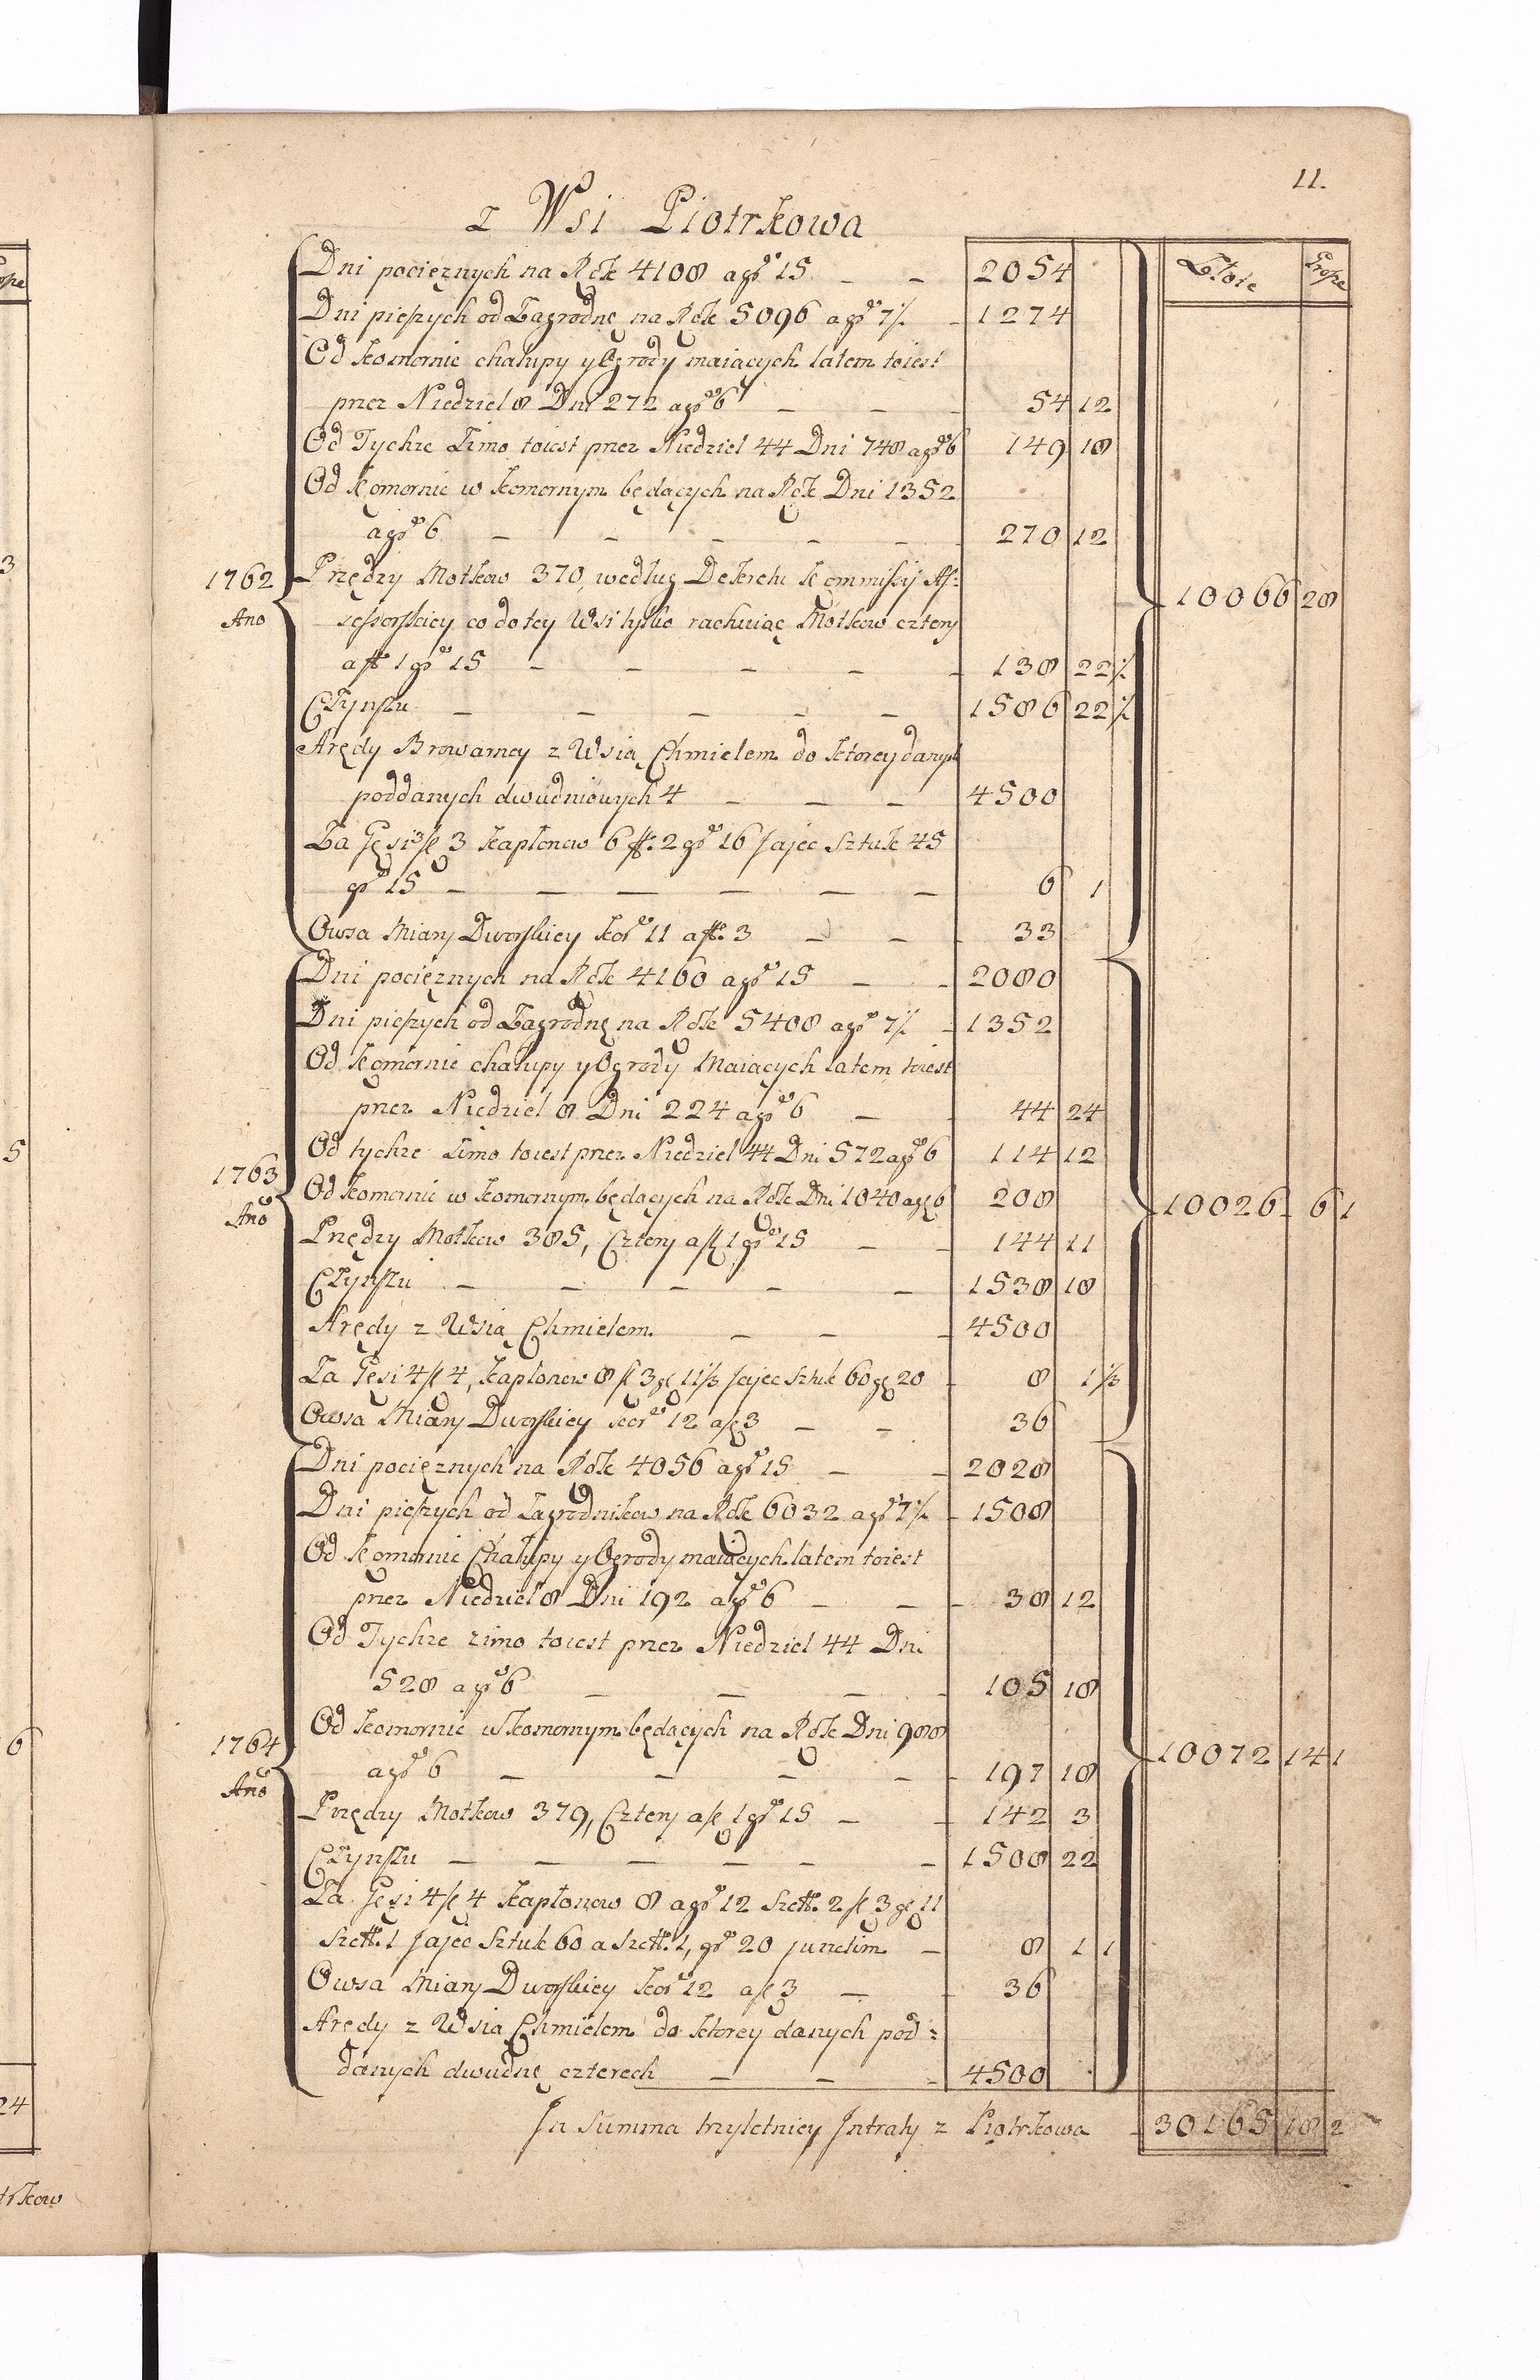 11.
z Wsi Piotrkowa
Złote Grosze
Dni pociężnych na Rok 4108 a gr 15 — — 2054
Dni pieszych od Zagrodnę na Rok 5096 a gr 7½ — 1274
Od komornic chałupy y Ogrody maiących latem toiest
przez Niedziel 8 Dni 272 a gr 6 — — — 54 12
Od Tychże Zimo toiest przez Niedziel 44 Dni 748 a gr 6 149 18
Od komornic w komornym będących na Rok Dni 1352
a gr 6 — — — — — 270 12
1762 Przędzy Motkow 370, według Dekretu Kommissij As=
10066 28
Ano sessorskiey co do tey Wsi tylko rachuiąc Motkow cztery
a fł 1 gr 15 — — — — — 138 22½
Czynszu — — — — — 1586 22½
Arędy Browarney z Wsią Chmielem do ktorey danych
poddanych dwudniowych 4 — — — 4500
Za Gęsi 3 fł 3 kapłonow 6 fł. 2 gr 16 Jajec Sztuk 45
gr 15 — — — — — — 6 1
Owsa Miary Dworskiey kor 11 a fł. 3 — — — 33
Dni pociężnych na Rok 4160 a gr 15 — — 2080
Dni pieszych od Zagrodnę na Rok 5408 a gr 7½ — 1352
Od komornic chałupy y Ogrody Maiących latem toiest
przez Niedziel 8 Dni 224 a gr 6 — — 44 24
Od tychże Zimo toiest przez Niedziel 44 Dni 572 a gr 6 114 12
1763 Od komornic w komornym będących na Rok Dni 1040 a gr 6 208
10026 6 1
Ano Przędzy Motkow 385, Cztery a fł 1 gr 15 — — 144 11
Czynszu — — — — — 1538 18
Arędy z Wsią Chmielem — — — 4500
Za Gęsi 4 fł 4, kapłonow 8 fł 3 gr 11⅓ Jajec Sztuk 60 gr 20 — 8 1⅓
Owsa Miary Dworskiey kor 12 a fł 3 — — 36
Dni pociężnych na Rok 4056 a gr 15 — — 2028
Dni pieszych od Zagrodnikow na Rok 6032 a gr 7½ — 1508
Od komornic Chałupy y Ogrody maiących latem toiest
przez Niedziel 8 Dni 192 a gr 6 — — — 38 12
Od Tychże zimo toiest przez Niedziel 44 Dni
528 a gr 6 — — — — 105 18
Od komornic w komornym będących na Rok Dni 988
1764 a gr 6 — — — — — 197 18
10072 14 1
Ano Przędzy Motkow 379, Cztery a fł 1 gr 15 — — 142 3
Czynszu — — — — — — 1508 22
Za Gęsi 4 fł 4 kapłonow 8 a gr 12 Szelł. 2 fł 3 gr 11
Szelł. 1 Jajec Sztuk 60 a Szelł. 1, gr 20 junctim — 8 1 1
Owsa Miary Dworskiey kor 12 a fł 3 — — 36
Arędy z Wsią Chmielem do ktorey danych pod=
danych dwudnę czterech — — — 4500
In Summa trzyletniey Intraty z Piotrkowa — 30165 18 2